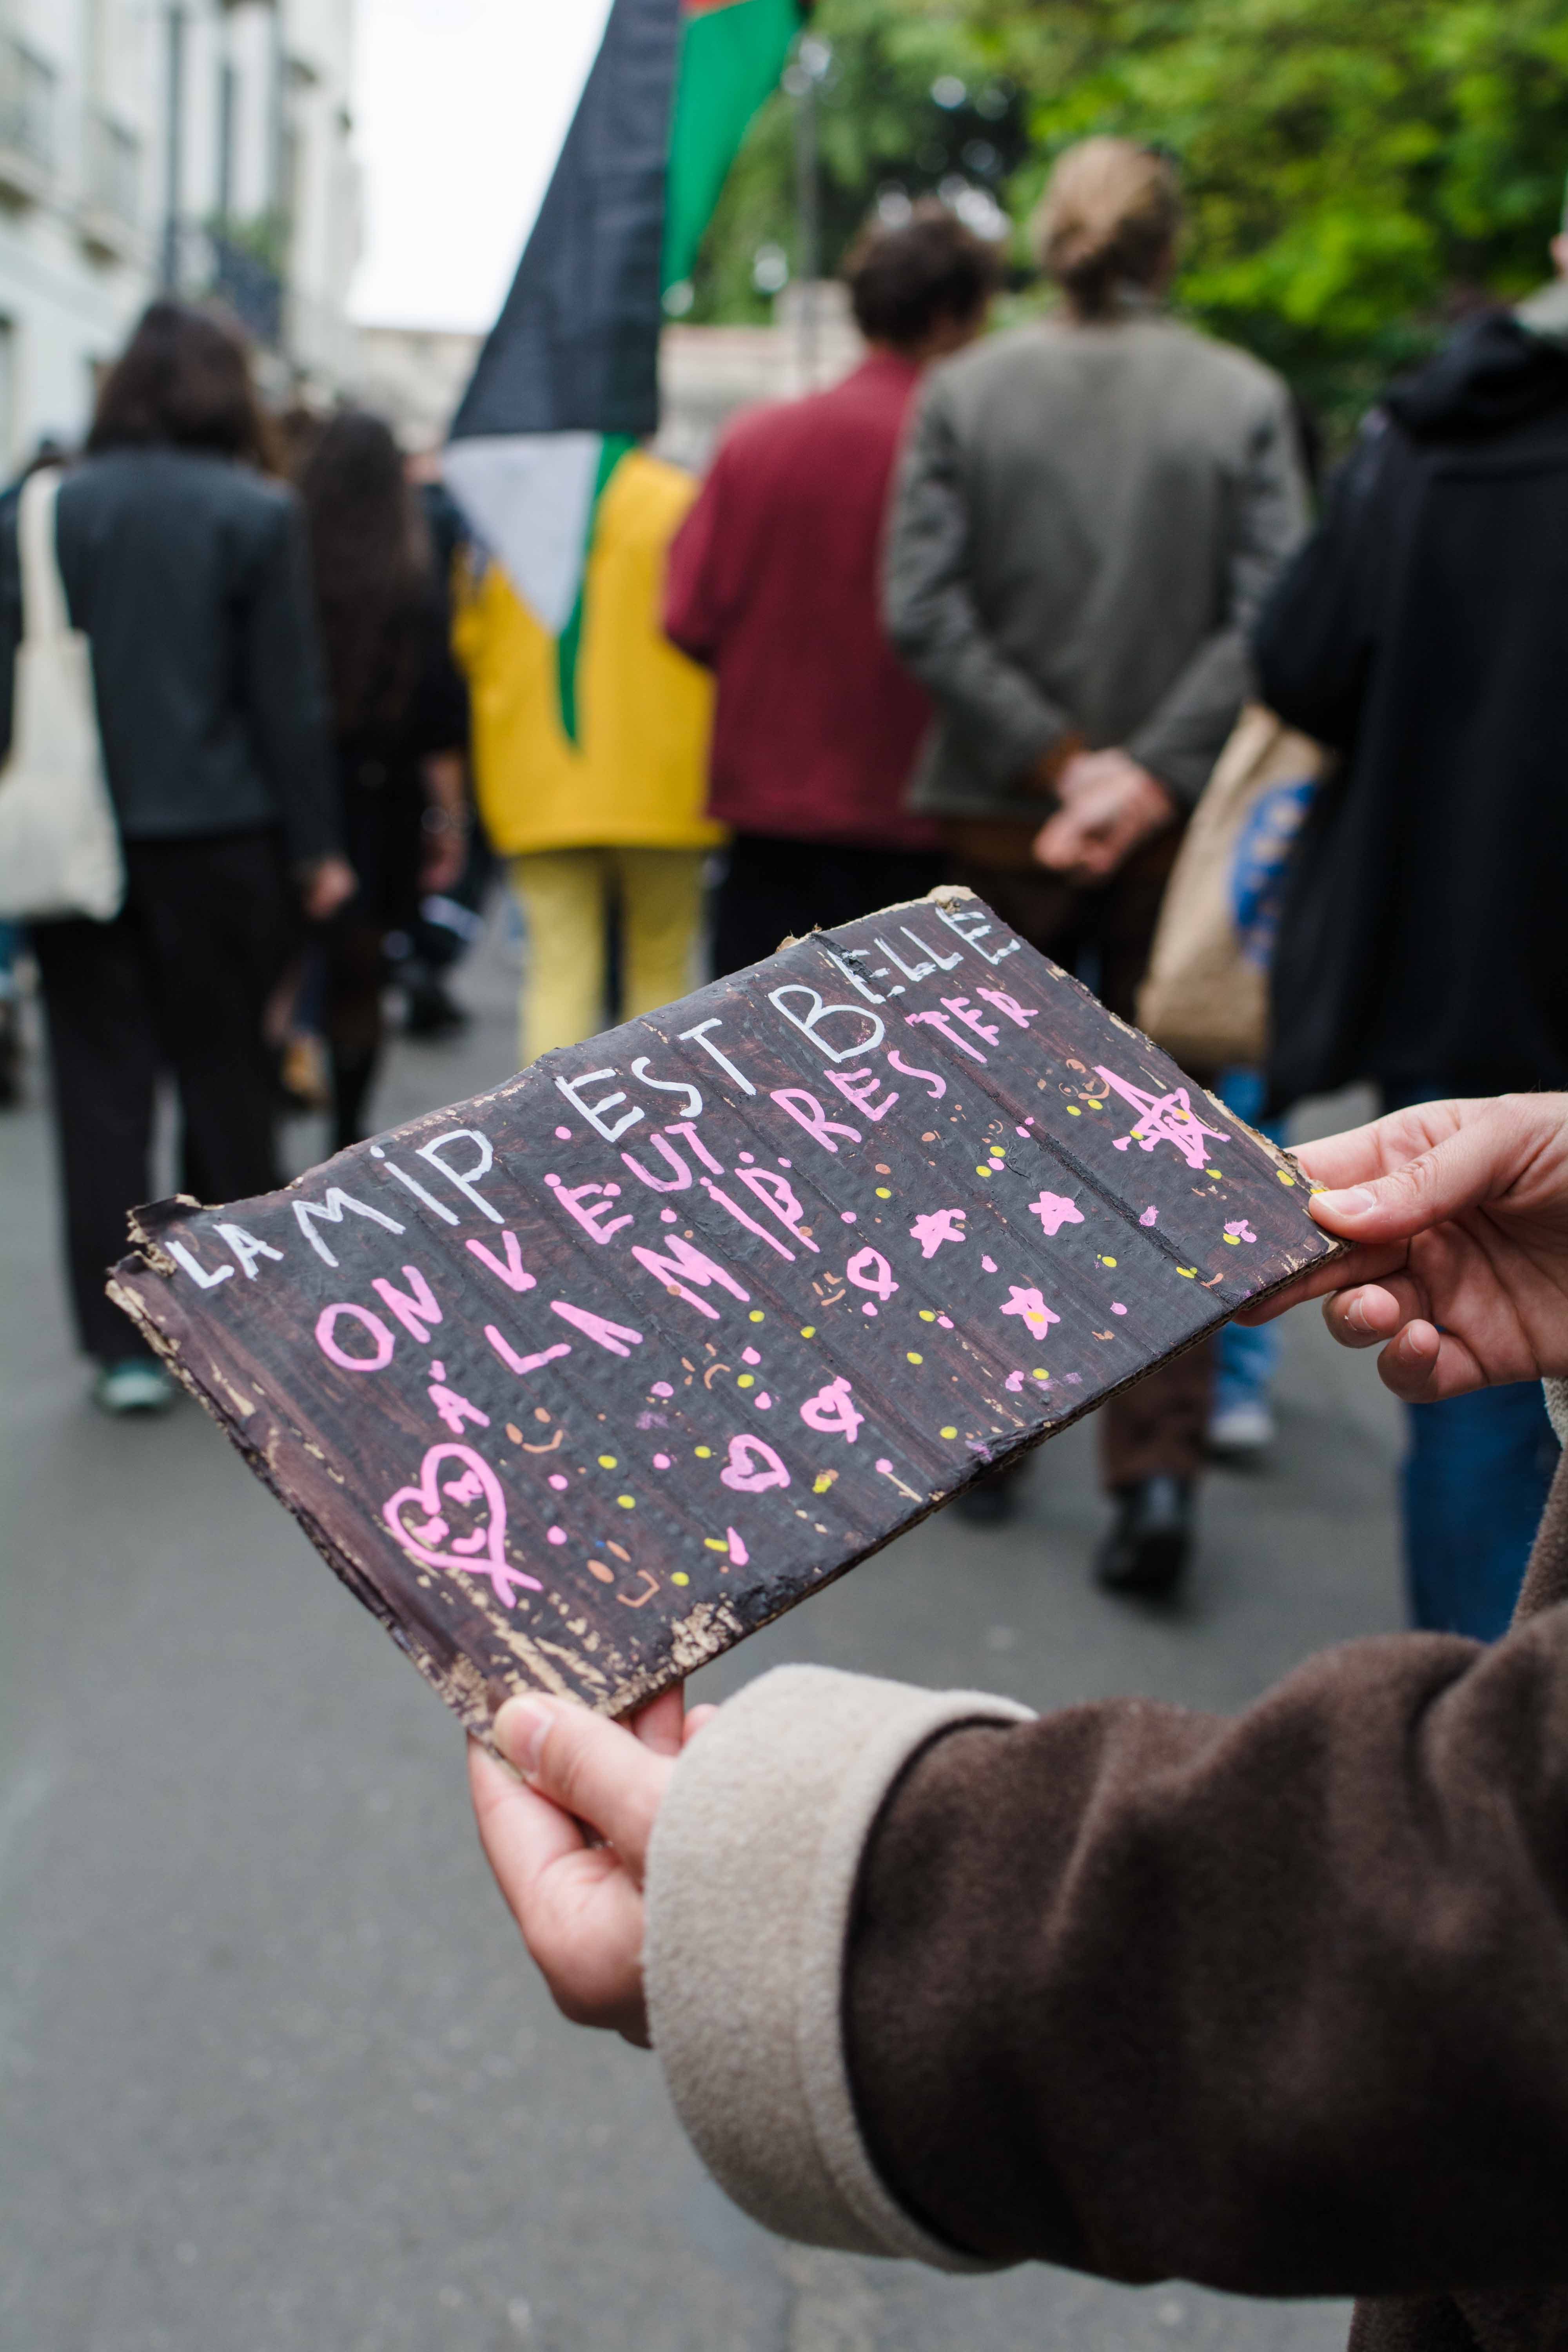 LA MiP EST BELLE
ON VEUT RESTER
À LA MIP